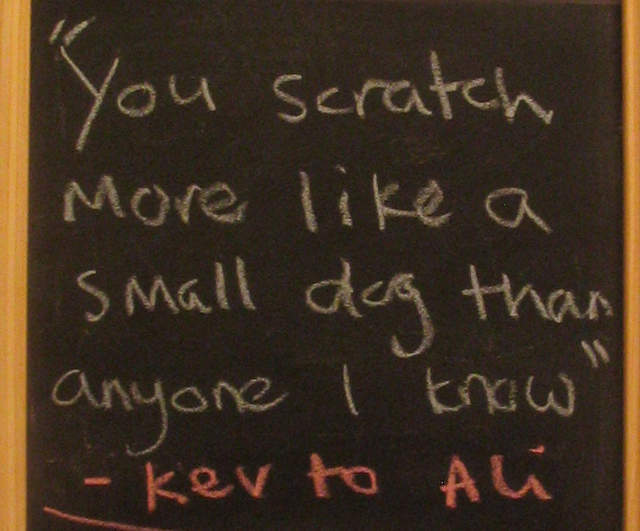 "You scratch
more like a
small dog than
anyone I know"
- Kev to Ali